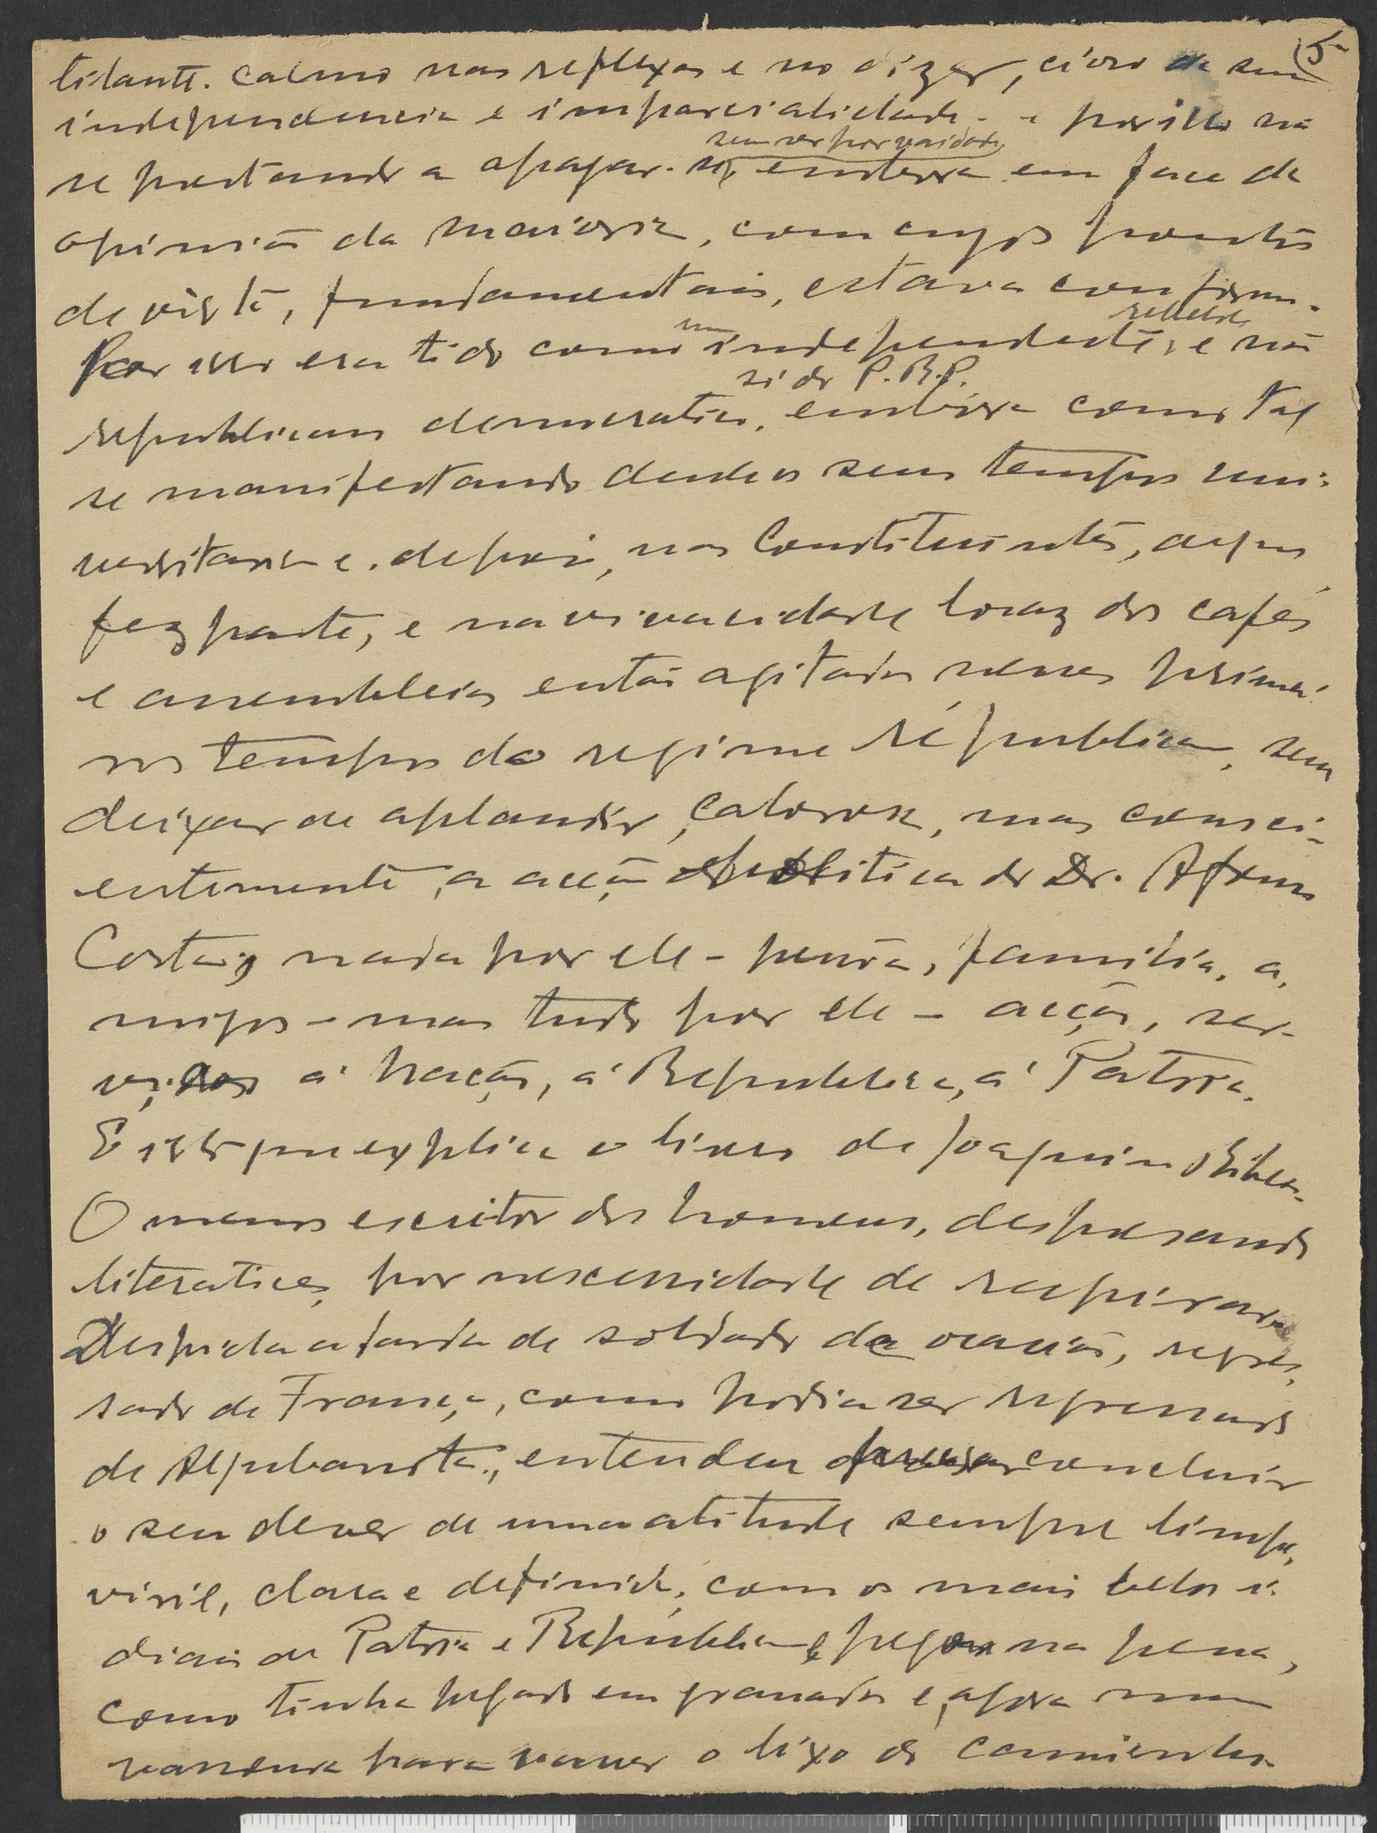 5
tilante. Calmo nas reflexos e no dizer, cioso da sua
independencia e imparcialidade - e por isso não
se prestando a apagar-se, embora em face da
sem ser por vaidade
opinião da maioria, com cujos pontos
de vista, fundamentais, estava conforme.
Por isso era tido como um independente, rebelde e não
republicano democratico, si do P.R.P. embora como tal
se manifestando desde os seus tempos uni-
versitarios e, depois, nas Constituintes, de que
fez parte, e na vivacidade loquaz dos cafés
e assembleias então agitadas nesses primei-
ros tempos do regime républicano, sem
deixar de aplaudir, calorosa, mas consci-
entemente, a acção politica do Dr. Afonso
Costa, nada por ele - pessôa, familia, a-
migos - mas tudo por ele - acção, ser-
viços á Nação, á Republica, á Patria.
E isto que explica o livro de Joaquim Ribeiro.
O menos escritor dos homens, despresando
literatices, por necessidade de respirar
Despida a farda de soldado da ocasião, regres-
sado de França, como podia ser regressado
de Aljubarrota, entendeu concluir
o seu dever de uma atitude sempre limpa,
viril, clara e definida, com os mais belos i-
diais de Patria e República, e pegou na pena,
como tinha pegado em granadas e, agora numa
vassoura para varrer o lixo do